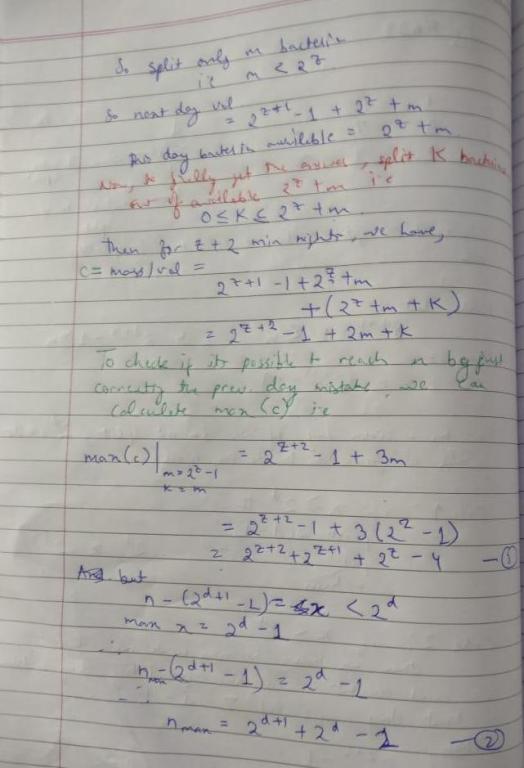 So split only m bacteria
ie m < 2^z
So next day vol
= 2^{z+1} - 1 + 2^z + m
this day bacteria available = 2^z + m
Now, to fully get the answer, split K bacteria
out of available 2^z + m ie
0 ≤ K ≤ 2^z + m
then for z + 2 min nights, we have,
c = mass/vol =
2^{z+1} - 1 + 2^z + m
+ (2^z + m + K)
= 2^{z+2} - 1 + 2m + K
To check if its possible to reach n by just
correcting the prev day mistake, we can
calculate max (c) ie
max(c)|_{m = 2^z - 1, K = m} = 2^{z+2} - 1 + 3m
= 2^{z+2} - 1 + 3(2^z - 1)
= 2^{z+2} + 2^{z+1} + 2^z - 4 —①
but
n - (2^{d+1} - 1) = x < 2^d
max x = 2^d - 1
∴
n_{max} - (2^{d+1} - 1) = 2^d - 1
∴
n_{max} = 2^{d+1} + 2^d - 2 —②